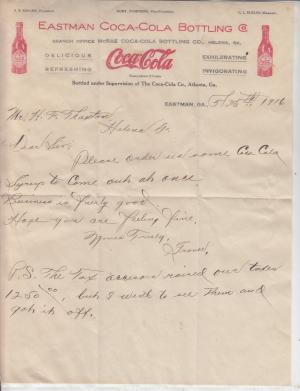 EASTMAN COCA-COLA BOTTLING Co
BRANCH OFFICE McRAE COCA-COLA BOTTLING CO., HELENA, GA.
DELICIOUS
REFRESHING
Coca-Cola
EXHILERATING
INVIGORATING
Bottled under Supervision of The Coca-Cola Co., Atlanta, Ga.
EASTMAN, GA. 5/25th 1916
Mr. H. F.
Helena Ga.
Dear Sir:
Please order us some Coca Cola
Syrup to Come out at once
Business is fairly good.
Hope you are feeling fine.
Yours Truly,
P.S. The Tax accessors raised our taxes
1250 00, but I went to see them and
got it off.